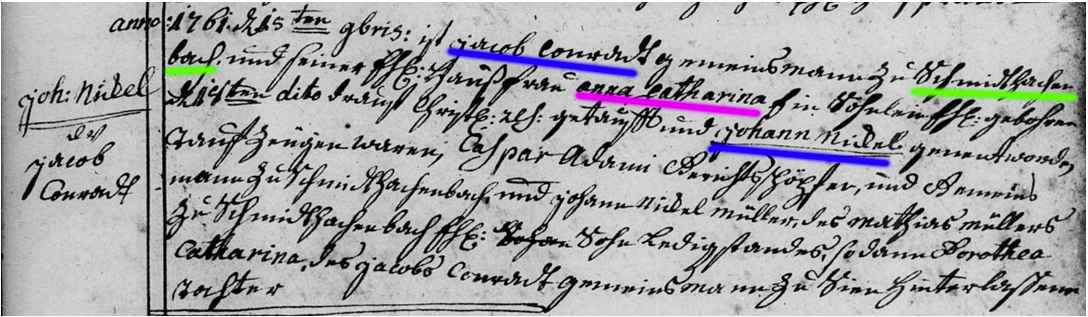 anno 1761 d 15ten 9bris: ist jacob Conradt gemeinsmann zu Schmidthachen
bach, und seiner Ehl: Haußfrau anna Catharina Ein Söhnlein Ehl: gebohren
joh: Nickel
dito drauf Christl: getaufft und johann Nickel genent worden,
des
jacob
Conradt
Tauff Zeugen waren, Caspar Adami Gerichtsschöpfer, und Gemeins
mann zu Schmidthachenbach, und johann Nickel müller, des mathias müllers
zu Schmidthachenbach Ehl: Sohn Ledig standes, so dann Dorothea
Catharina, des jacobs Conradt gemeinsmann zu Sien hinterlassene
Tochter